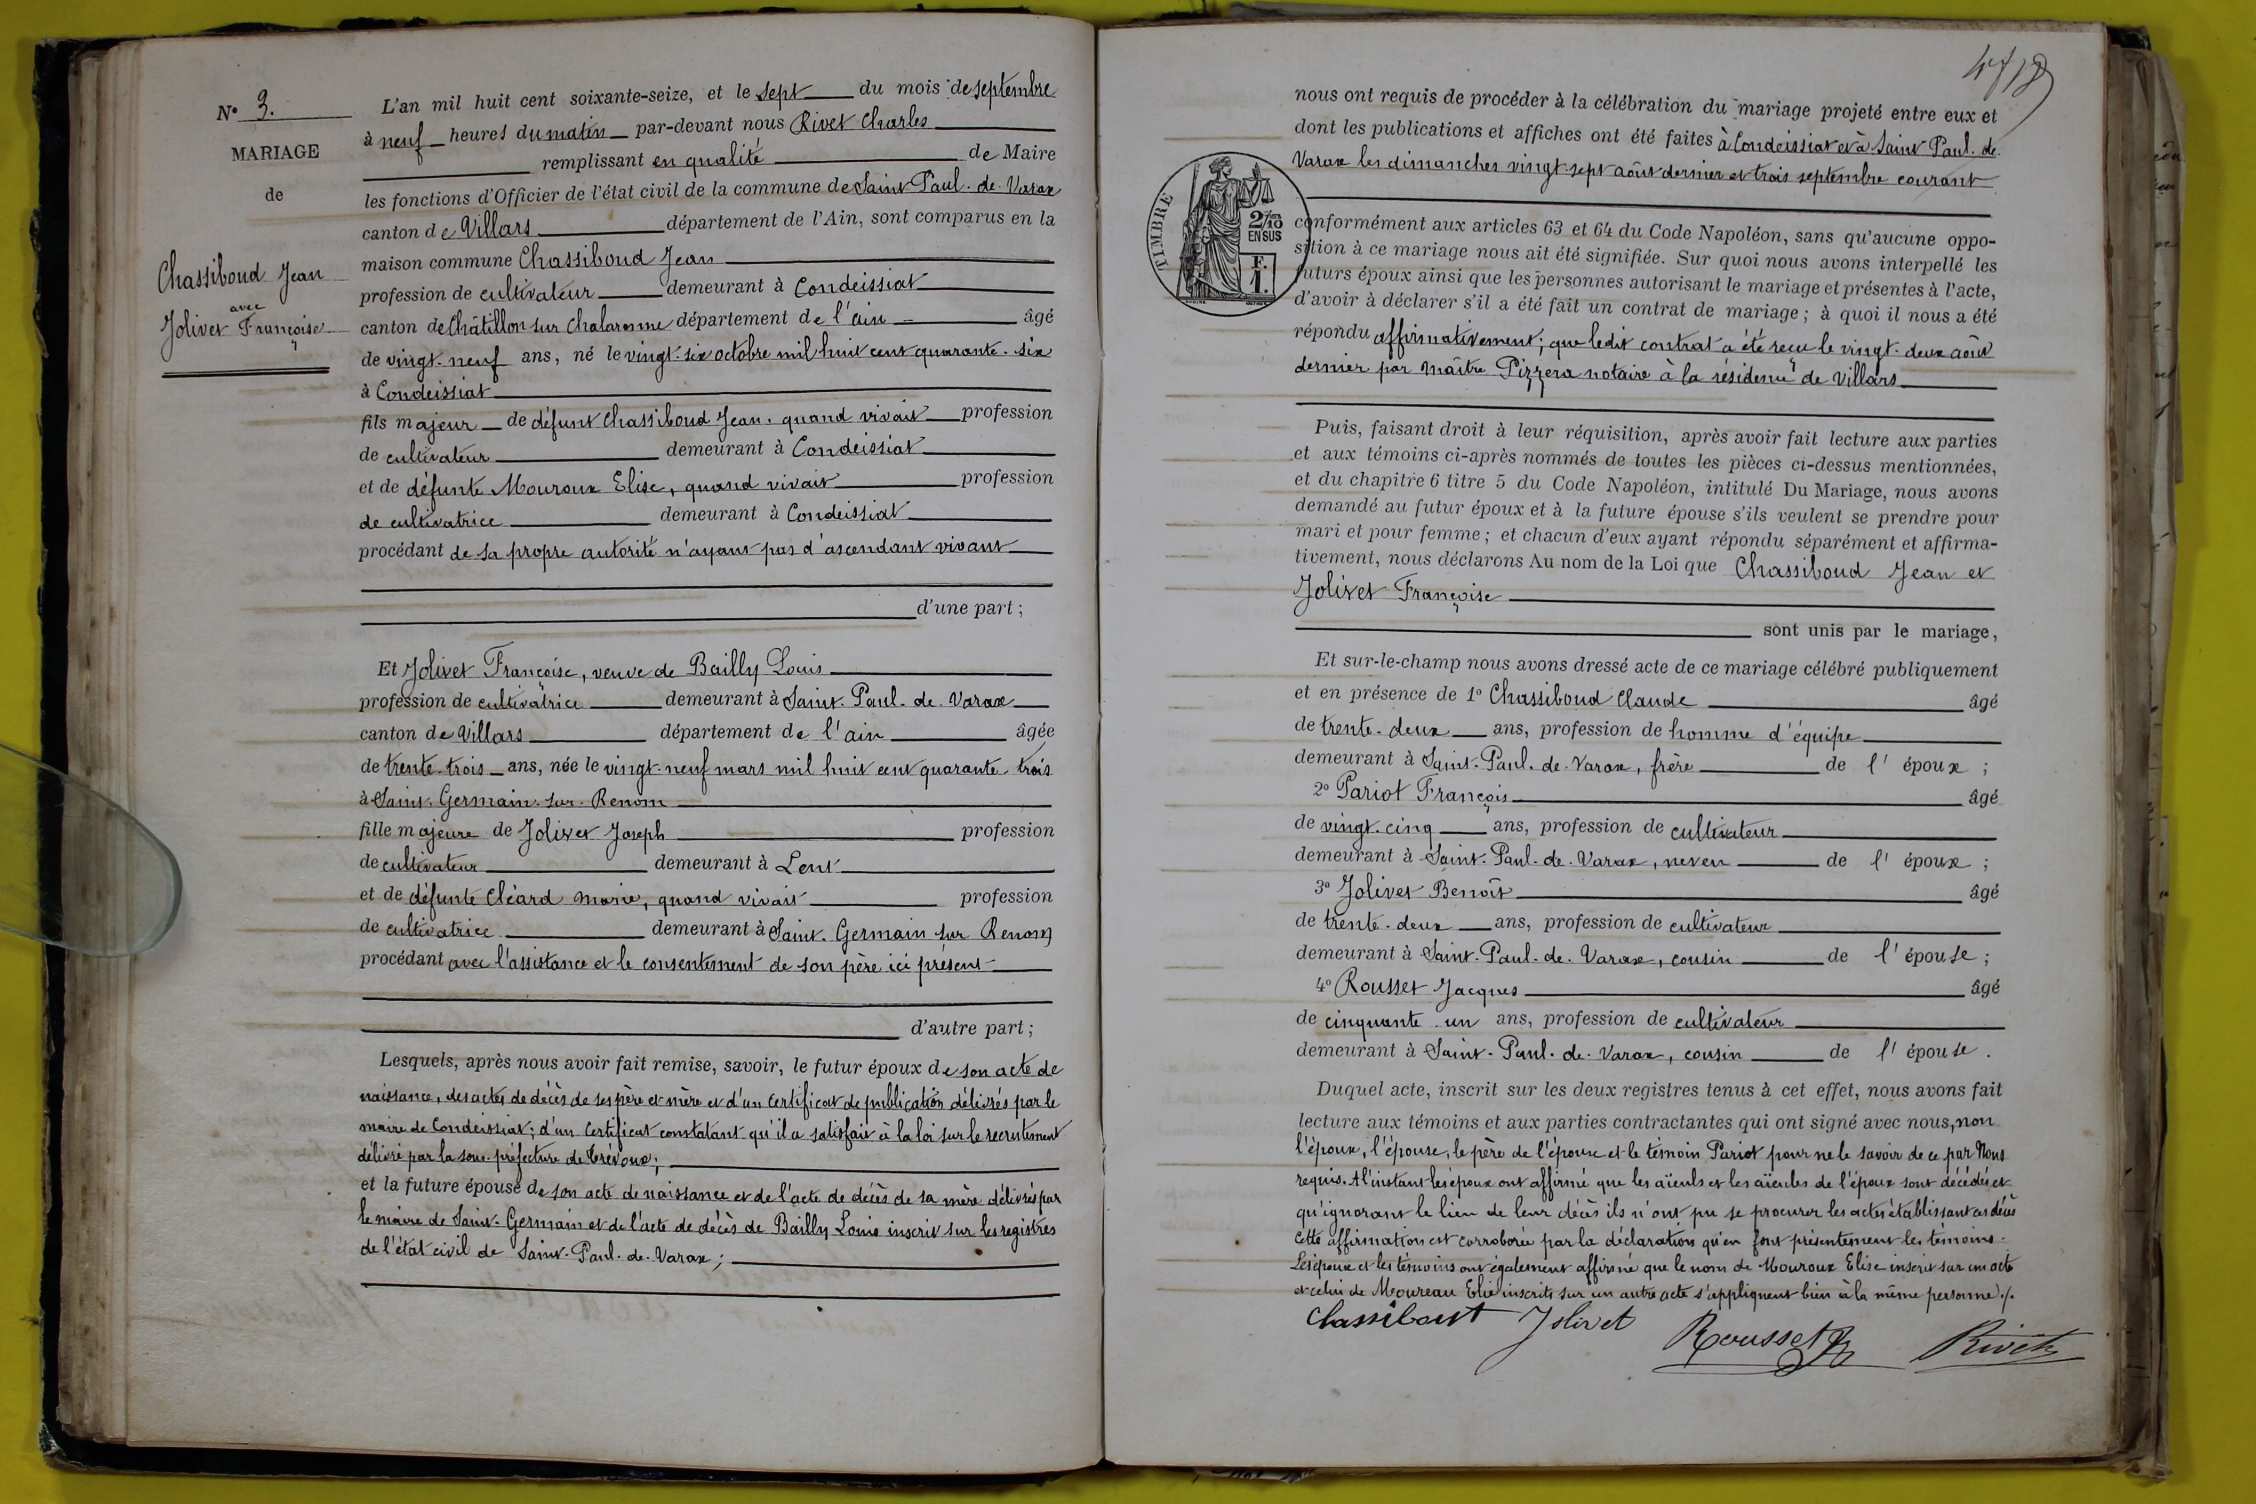 N° 3.
MARIAGE
de
Chassiboud Jean
avec
Jolivet Françoise
L'an mil huit cent soixante-seize, et le sept du mois de septembre
à neuf heures du matin par-devant nous Rivet Charles
remplissant en qualité de Maire
les fonctions d'Officier de l'état civil de la commune de Saint Paul. de. Varax
canton de Villars département de l'Ain, sont comparus en la
maison commune Chassiboud Jean
profession de cultivateur demeurant à Condeissiat
canton de Châtillon sur Chalaronne département de l'ain âgé
de vingt. neuf ans, né le vingt. six octobre mil huit cent quarante. six
à Condeissiat
fils majeur de défunt Chassiboud Jean. quand vivait profession
de cultivateur demeurant à Condeissiat
et de défunte Mouroux Elise, quand vivait profession
de cultivatrice demeurant à Condeissiat
procédant de sa propre autorité n'ayant pas d'ascendant vivant
d'une part ;
Et Jolivet Françoise, veuve de Bailly Louis
profession de cultivatrice demeurant à Saint. Paul. de. Varax
canton de Villars département de l'ain âgée
de trente. trois ans, née le vingt. neuf mars mil huit cent quarante. trois
à Saint. Germain. sur. Renom
fille majeure de Jolivet Joseph profession
de cultivateur demeurant à Lent
et de défunte Cléard marie, quand vivait profession
de cultivatrice demeurant à Saint. Germain sur Renom
procédant avec l'assistance et le consentement de son père ici présent
d'autre part ;
Lesquels, après nous avoir fait remise, savoir, le futur époux de son acte de
naissance, des actes de décès de ses père et mère et d'un certificat de publication délivrés par le
maire de Condeissiat; d'un certificat constatant qu'il a satisfait à la loi sur le recrutement
délivré par la sous. préfecture de trévoux;
et la future épouse de son acte de naissance et de l'acte de décès de sa mère délivrés par
le maire de Saint. Germain et de l'acte de décès de Bailly Louis inscrit sur les registres
de l'état civil de Saint. Paul. de. Varax ;
nous ont requis de procéder à la célébration du mariage projeté entre eux et
dont les publications et affiches ont été faites à Condeissiat et à Saint Paul. de.
Varax les dimanches vingt. sept août dernier et trois septembre courant
TIMBRE
2/10
EN SUS
F.
1.
conformément aux articles 63 et 64 du Code Napoléon, sans qu'aucune oppo-
sition à ce mariage nous ait été signifiée. Sur quoi nous avons interpellé les
futurs époux ainsi que les personnes autorisant le mariage et présentes à l'acte,
d'avoir à déclarer s'il a été fait un contrat de mariage ; à quoi il nous a été
répondu affirmativement; que ledit contrat a été reçu le vingt. deux août
dernier par maître Pizzera notaire à la résidence de Villars
Puis, faisant droit à leur réquisition, après avoir fait lecture aux parties
et aux témoins ci-après nommés de toutes les pièces ci-dessus mentionnées,
et du chapitre 6 titre 5 du Code Napoléon, intitulé Du Mariage, nous avons
demandé au futur époux et à la future épouse s'ils veulent se prendre pour
mari et pour femme ; et chacun d'eux ayant répondu séparément et affirma-
tivement, nous déclarons Au nom de la Loi que Chassiboud Jean et
Jolivet Françoise
sont unis par le mariage,
Et sur-le-champ nous avons dressé acte de ce mariage célébré publiquement
et en présence de 1° Chassiboud Claude âgé
de trente. deux ans, profession de homme d'équipe
demeurant à Saint. Paul. de. Varax, frère de l'époux ;
2° Pariot François âgé
de vingt. cinq ans, profession de cultivateur
demeurant à Saint. Paul. de. Varax, neveu de l'époux ;
3° Jolivet Benoît âgé
de trente. deux ans, profession de cultivateur
demeurant à Saint. Paul. de. Varax, cousin de l'épouse ;
4° Rousset Jacques âgé
de cinquante un ans, profession de cultivateur
demeurant à Saint. Paul. de. Varax, cousin de l'épouse .
Duquel acte, inscrit sur les deux registres tenus à cet effet, nous avons fait
lecture aux témoins et aux parties contractantes qui ont signé avec nous, non
l'époux, l'épouse, le père de l'épouse et le témoin Pariot pour ne le savoir de ce par Nous
requis. A l'instant les époux ont affirmé que les aïeuls et les aïeules de l'époux sont décédés et
qu'ignorant le lieu de leur décès ils n'ont pu se procurer les actes établissant ces décès
cette affirmation est corroborée par la déclaration qu'en font présentement les témoins.
Les époux et les témoins ont également affirmé que le nom de Mouroux Elise inscrit sur un acte
et celui de Moureau Elise inscrits sur un autre acte s'appliquent bien à la même personne ./.
Chassiboust Jolivet Rousset Rivet